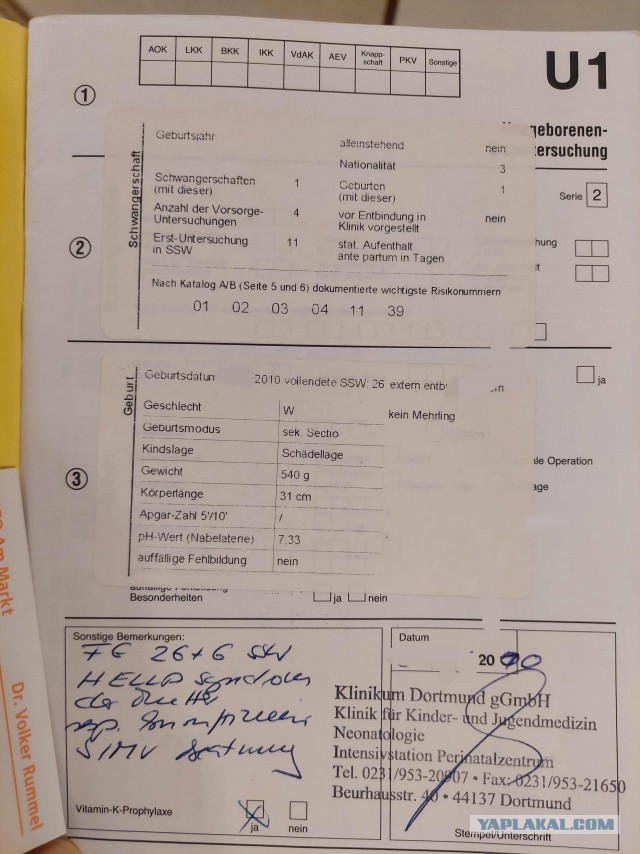 AOK LKK BKK IKK VdAK AEV Knapp-schaft PKV Sonstige
U1
1
geborenen-
ersuchung
Schwangerschaft
Geburtsjahr
alleinstehend nein
Nationalität 3
Schwangerschaften (mit dieser) 1
Geburten (mit dieser) 1
Serie 2
Anzahl der Vorsorge-Untersuchungen 4
vor Entbindung in Klinik vorgestellt nein
2
Erst-Untersuchung in SSW 11
stat. Aufenthalt ante partum in Tagen
hung
Nach Katalog A/B (Seite 5 und 6) dokumentierte wichtigste Risikonummern
01 02 03 04 11 39
Geburt
Geburtsdatum 2010 vollendete SSW: 26 extern entb
ja
Geschlecht W kein Mehrling
Geburtsmodus sek. Sectio
Kindslage Schädellage
le Operation
3
Gewicht 540 g
age
Körperlänge 31 cm
Apgar-Zahl 5'/10' /
pH-Wert (Nabelaterie) 7,33
auffällige Fehlbildung nein
Besonderheiten ja nein
Sonstige Bemerkungen:
FG 26+6 SSW
HELLP Syndrom
der Mutter
SIMV Beatmung
Vitamin-K-Prophylaxe ja nein
Datum
20
Klinikum Dortmund gGmbH
Klinik für Kinder- und Jugendmedizin
Neonatologie
Intensivstation Perinatalzentrum
Tel. 0231/953-20907 • Fax: 0231/953-21650
Beurhausstr. 40 • 44137 Dortmund
Stempel/Unterschrift
Am Markt
Dr. Volker Rummel
YAPLAKAL.COM